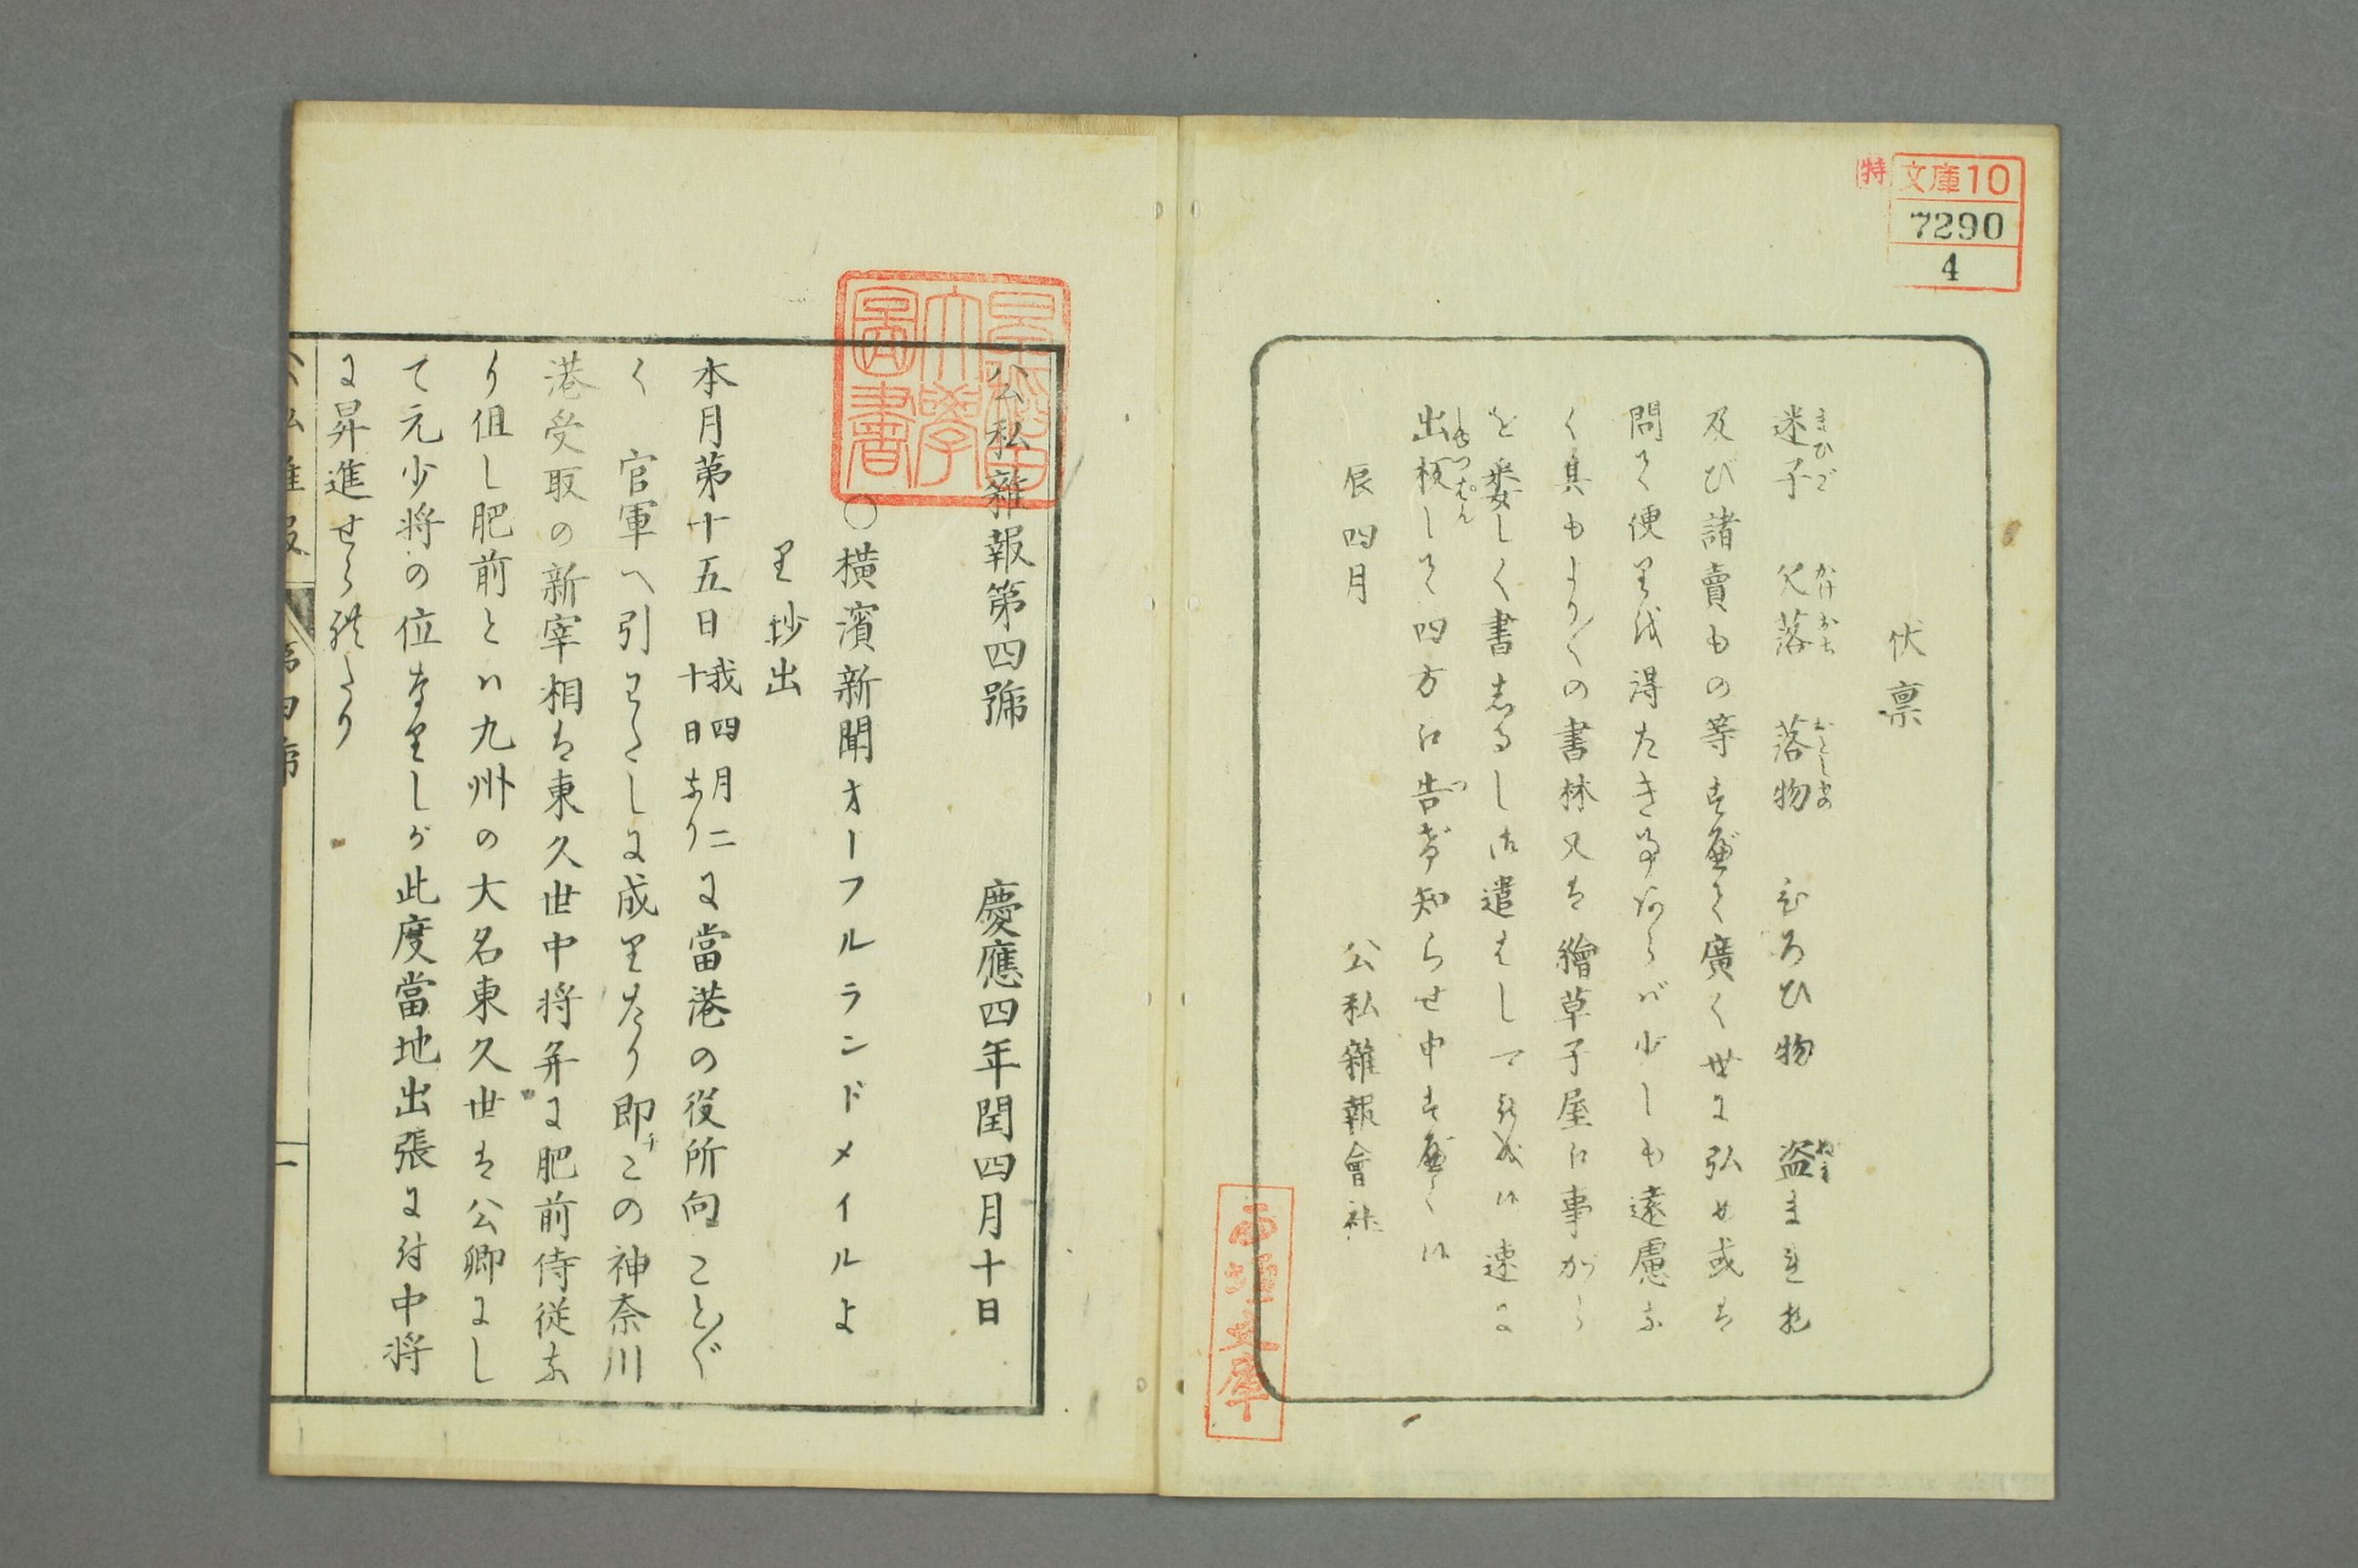 特
文庫10
7290
4
伏禀
迷子 欠落 落物 ひろひ物 盗まれ物
まひご かけおち おとしもの ぬす
及び諸賣もの等すべて廣く世に弘め或は
問て便りを得たき事あらば少しも遠慮な
く其もより〱の書林又は繪草子屋に事がら
を委しく書志るし御遣はし可被成候速に
出板して四方に告げ知らせ申すべく候
しゆつぱん つ
辰四月 公私雜報會社
西垣文庫
早稲田大學圖書
公私雜報第四號 慶應四年閏四月十日
○横濱新聞オーフルランドメイルよ
り抄出
本月第十五日我四月二十日なりに當港の役所向こと〲
く 官軍へ引わたしに成りたり即チこの神奈川
港受取の新宰相は東久世中将并に肥前侍従な
り但し肥前とハ九州の大名東久世は公卿にし
て元少将の位なりしが此度當地出張に付中将
に昇進せられたり
公私雜報 第四號 一